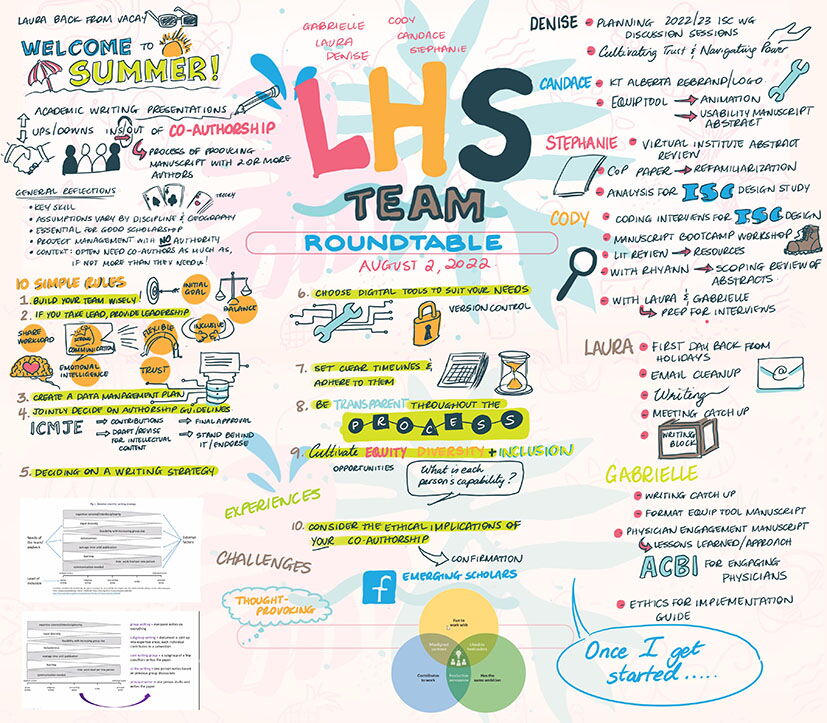 LAURA BACK FROM VACAY
WELCOME TO
SUMMER!
ACADEMIC WRITING PRESENTATIONS
UPS/DOWNS INS/OUT OF CO-AUTHORSHIP
PROCESS OF PRODUCING
MANUSCRIPT WITH 2 OR MORE
AUTHORS
GENERAL REFLECTIONS
TRICKY
• KEY SKILL
• ASSUMPTIONS VARY BY DISCIPLINE & GEOGRAPHY
• ESSENTIAL FOR GOOD SCHOLARSHIP
• PROJECT MANAGEMENT WITH NO AUTHORITY
• CONTEXT: OFTEN NEED CO-AUTHORS AS MUCH AS,
IF NOT MORE THAN THEY NEED U!
10 SIMPLE RULES
1. BUILD YOUR TEAM WISELY!
INITIAL GOAL
BALANCE
2. IF YOU TAKE LEAD, PROVIDE LEADERSHIP
SHARE WORKLOAD
STRONG COMMUNICATION
FLEXIBLE
INCLUSIVE
EMOTIONAL INTELLIGENCE
TRUST
3. CREATE A DATA MANAGEMENT PLAN
4. JOINTLY DECIDE ON AUTHORSHIP GUIDELINES
ICMJE → CONTRIBUTIONS → FINAL APPROVAL
→ DRAFT/REVISE FOR INTELLECTUAL CONTENT → STAND BEHIND IT/ENDORSE
5. DECIDING ON A WRITING STRATEGY
GABRIELLE
CODY
LAURA
CANDACE
DENISE
STEPHANIE
LHS
TEAM
ROUNDTABLE
AUGUST 2, 2022
6. CHOOSE DIGITAL TOOLS TO SUIT YOUR NEEDS
VERSION CONTROL
7. SET CLEAR TIMELINES &
ADHERE TO THEM
8. BE TRANSPARENT THROUGHOUT THE
PROCESS
9. Cultivate EQUITY DIVERSITY + INCLUSION
OPPORTUNITIES
What is each
person's capability?
EXPERIENCES
10. CONSIDER THE ETHICAL IMPLICATIONS OF
YOUR CO-AUTHORSHIP
CONFIRMATION
CHALLENGES
f EMERGING SCHOLARS
THOUGHT-
PROVOKING
Fun to
work with
Misaligned
Likeable
Contributes
to work
Productive
Has the
same ambition
DENISE
• PLANNING 2022/23 ISC WG
DISCUSSION SESSIONS
• Cultivating Trust & Navigating Power
CANDACE
• KT ALBERTA REBRAND/LOGO
• EQUIP TOOL → ANIMATION
→ USABILITY MANUSCRIPT
ABSTRACT
STEPHANIE
• VIRTUAL INSTITUTE ABSTRACT
REVIEW
• CoP PAPER → REFAMILIARIZATION
• ANALYSIS FOR ISC DESIGN STUDY
CODY
• CODING INTERVIEWS FOR ISC DESIGN
• MANUSCRIPT BOOTCAMP WORKSHOP
• LIT REVIEW → RESOURCES
• WITH RHYANN → SCOPING REVIEW OF
ABSTRACTS
• WITH LAURA & GABRIELLE
PREP FOR INTERVIEWS
LAURA
• FIRST DAY BACK FROM
HOLIDAYS
• EMAIL CLEANUP
• Writing
• MEETING CATCH UP
• WRITING
BLOCK
GABRIELLE
• WRITING CATCH UP
• FORMAT EQUIP TOOL MANUSCRIPT
• PHYSICIAN ENGAGEMENT MANUSCRIPT
LESSONS LEARNED/APPROACH
ACBI FOR ENGAGING
PHYSICIANS
• ETHICS FOR IMPLEMENTATION
GUIDE
Once I get
started.....